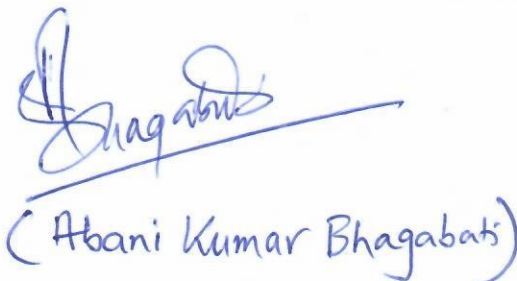 Bhagabati
(Abani Kumar Bhagabati)